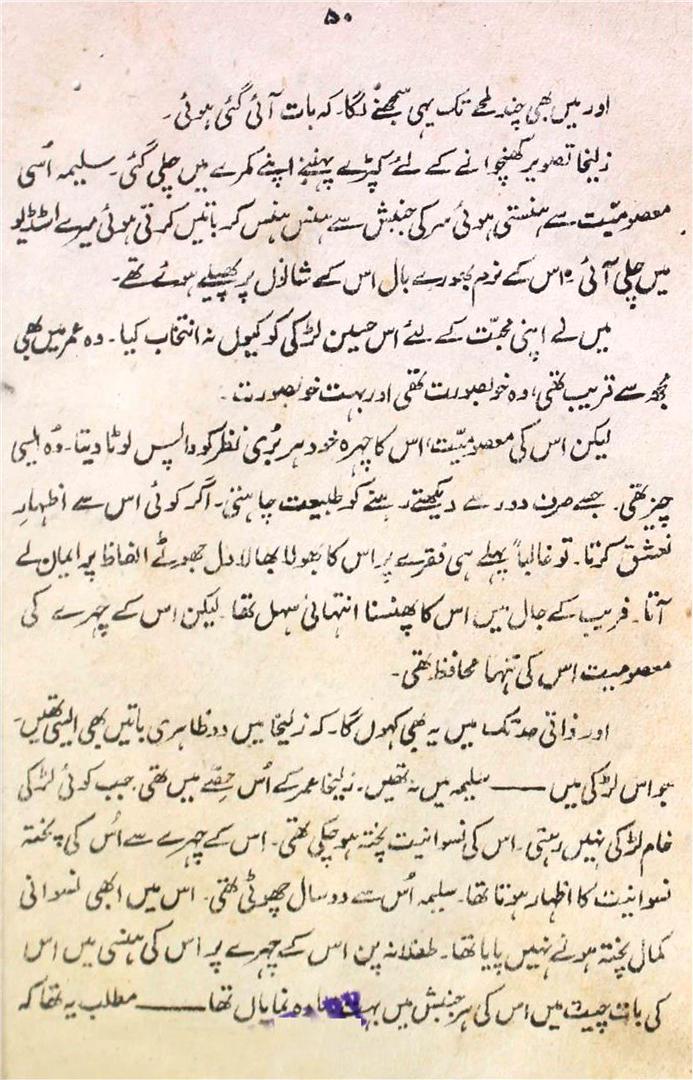 ۵۰
اور میں بھی چند لمحے تک یہی سمجھنے لگا۔ کہ بات آئی گئی ہوئی۔
زلیخا تصویر کھنچوانے کے لئے کپڑے پہننے اپنے کمرے میں چلی گئی۔ سلیمہ اُسی
معصومیّت سے ہنستی ہوئی سر کی جنبش سے ہنس ہنس کر باتیں کرتی ہوئی میرے اسٹڈیو
میں چلی آئی۔ اس کے نرم بھورے بال اس کے شانوں پر پھیلے ہوئے تھے۔
میں نے اپنی محبّت کے لئے اس حسین لڑکی کو کیوں نہ انتخاب کیا۔ وہ عمر میں بھی
مجھ سے قریب تھی، وہ خوبصورت تھی اور بہت خوبصورت۔
لیکن اس کی معصومیّت، اس کا چہرہ خود ہر بُری نظر کو واپس لوٹا دیتا۔ وُہ ایسی
چیز تھی۔ جسے صرف دور سے دیکھتے رہنے کو طبیعت چاہتی۔ اگر کوئی اس سے اظہارِ
تعشق کرتا۔ تو غالباً پہلے ہی فقرے پر اس کا بھولا بھالا دل جھوٹے الفاظ پر ایمان لے
آتا۔ فریب کے جال میں اس کا پھنسنا انتہائی سہل تھا۔ لیکن اس کے چہرے کی
معصومیت اس کی تنہا محافظ تھی۔
اور ذاتی حد تک میں یہ بھی کہوں گا۔ کہ زلیخا میں دو ظاہری باتیں بھی ایسی تھیں۔
جو اس لڑکی میں —— سلیمہ میں نہ تھیں۔ زلیخا عمر کے اُس حِصّے میں تھی۔ جب کوئی لڑکی
خام لڑکی نہیں رہتی۔ اس کی نسوانیت پختہ ہو چکی تھی۔ اس کے چہرے سے اُس کی پختہ
نسوانیت کا اظہار ہوتا تھا۔ سلیمہ اُس سے دو سال چھوٹی تھی۔ اس میں ابھی نسوانی
کمال پختہ ہونے نہیں پایا تھا۔ طفلانہ پن اس کے چہرے پر اس کی ہنسی میں اس
کی بات چیت میں اس کی ہر جنبش میں بہت نمایاں تھا —— مطلب یہ تھا کہ